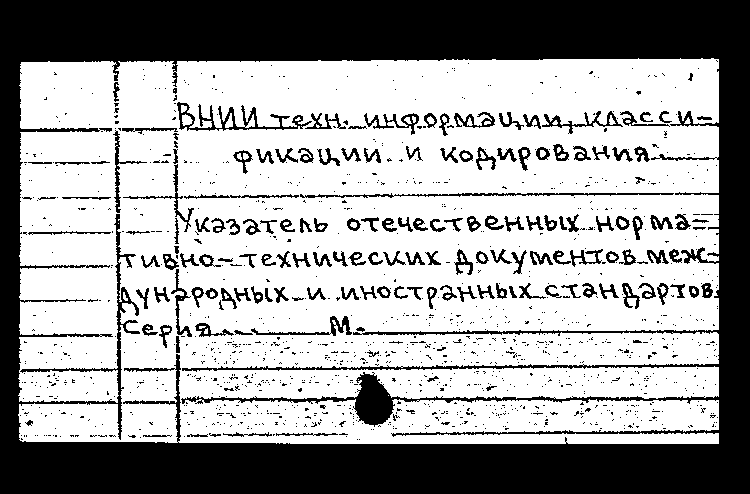 ВНИИ техн. информации, класси-
фикации и кодирования.
Указатель отечественных норма=
тивно-технических документов меж-
дународных и иностранных стандартов.
Серия... М.